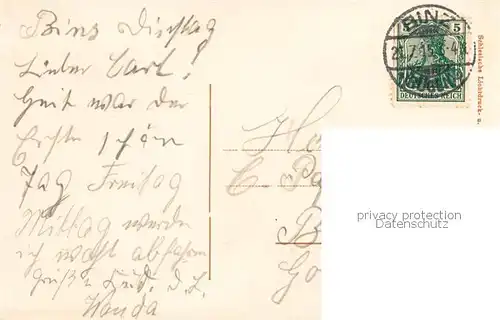 Binz Dienstag
Lieber Carl!
Heut war der
Erste schön
Tag Freitag
Mittag werde
ich wohl abfahren
Grüße
Wanda
BINZ
5
DEUTSCHES REICH
Schlesische Lichtdruck- u.
privacy protection
Datenschutz